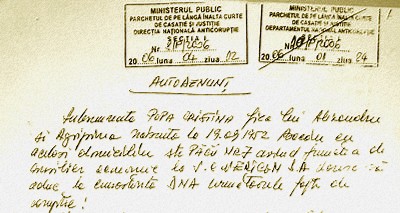 MINISTERUL PUBLIC
PARCHETUL DE PE LÂNGĂ ÎNALTA CURTE
DE CASAȚIE ȘI JUSTIȚIE
DIRECȚIA NAȚIONALĂ ANTICORUPȚIE
SECȚIA I
Nr. 21/P/2006
20 06 luna 04 ziua 12
MINISTERUL PUBLIC
PARCHETUL DE PE LÂNGĂ ÎNALTA CURTE
DE CASAȚIE ȘI JUSTIȚIE
DEPARTAMENTUL NAȚIONAL ANTICORUPȚIE
/P/2006
20 06 luna 01 ziua 24
AUTODENUNȚ
Subsemnata POPA CRISTINA fiica lui Alexandru
și Agripina născută la 1952 cu
același domiciliu str PĂCII NR.7 având funcția de
consilier economic la S.C S.A doresc să
aduc la cunoștința DNA următoarele fapte de
corupție!